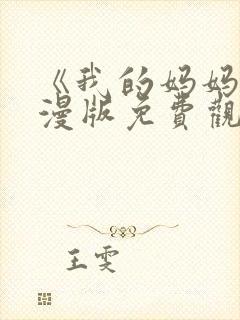 《我的妈妈
漫版免費觀
王雯